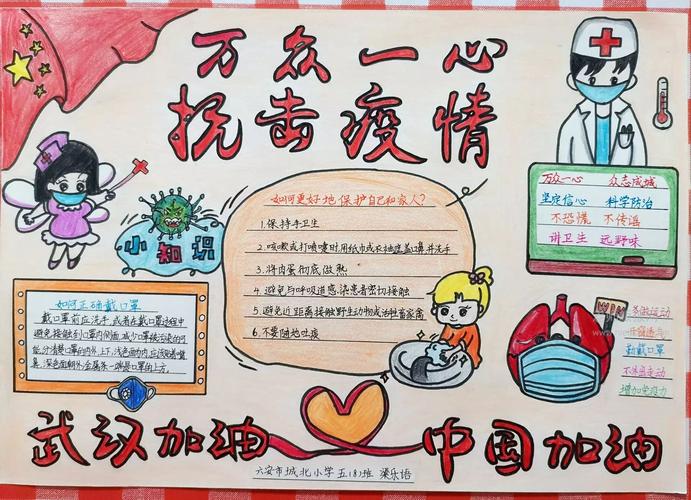 万众一心
抗击疫情
小知识
如何更好地保护自己和家人?
1.保持手卫生
2.咳嗽或打喷嚏时用纸巾或衣袖遮盖口鼻并洗手
3.将肉蛋彻底做熟
4.避免与呼吸道感染患者密切接触
5.避免近距离接触野生动物或活牲畜家禽
6.不要随地吐痰
万众一心 众志成城
坚定信心 科学防治
不恐慌 不传谣
讲卫生 远野味
如何正确戴口罩
戴口罩前应洗手,或者在戴口罩过程中
避免接触到口罩内侧面,减少口罩被污染的可
能,分清楚口罩的内外、上下,浅色面为内,应该贴着嘴
鼻,深色面朝外;金属条一端是口罩的上方。
WIN
多做运动
开窗通气
勤戴口罩
不来回走动
增加免疫力
武汉加油 中国加油
六安市城北小学 五(8)班 梁乐语